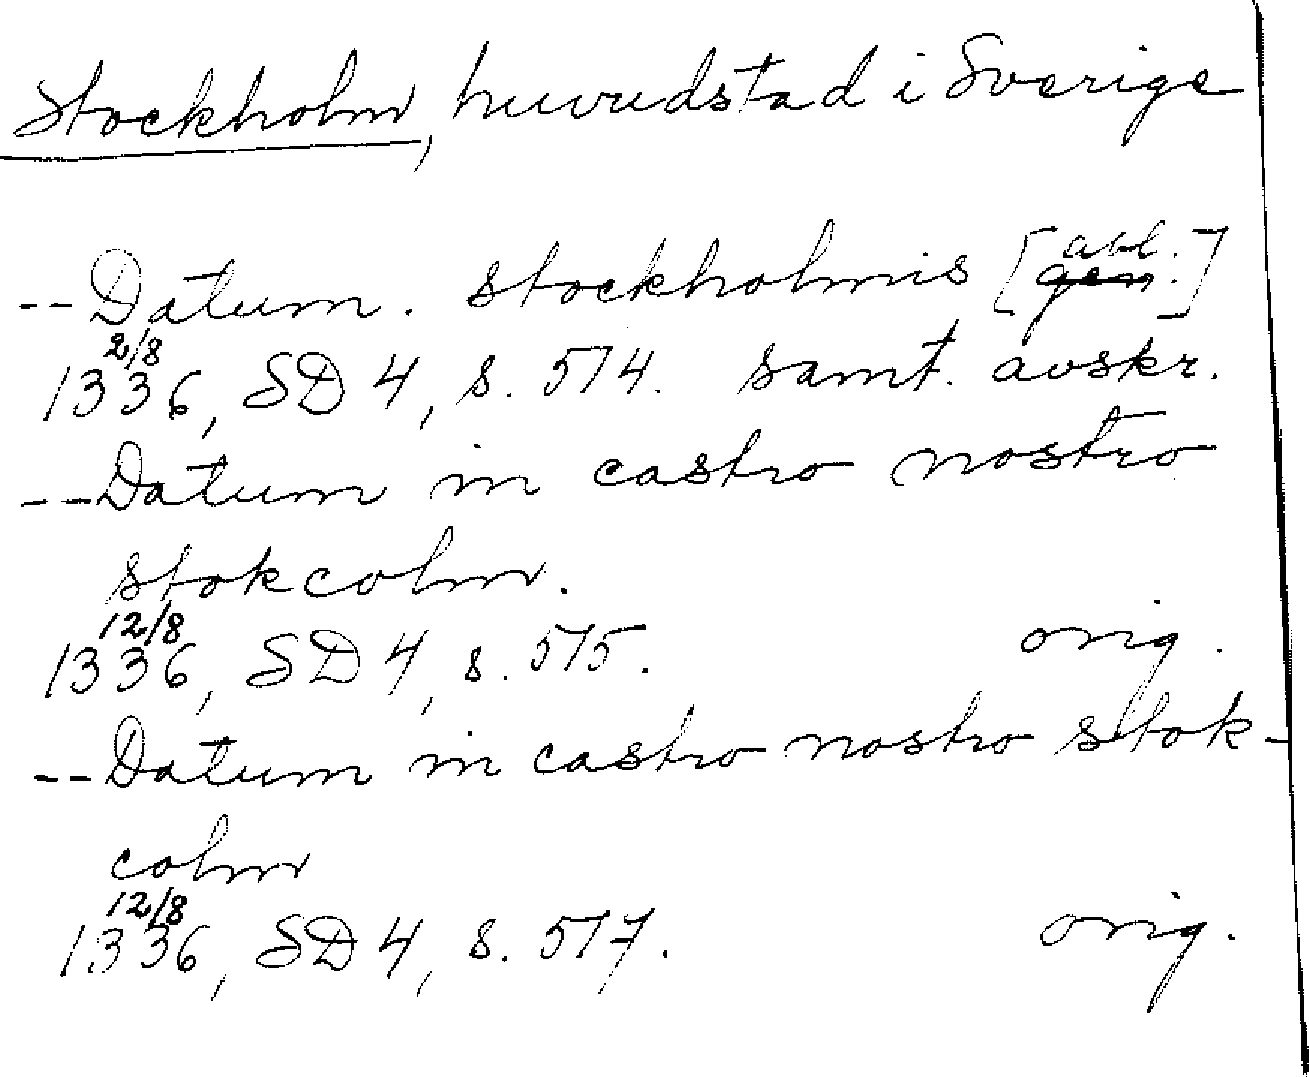 Stockholm, huvudstad i Sverige
--Datum. stockholmis [abl. gen.]
2/8
1336, SD 4, s. 574. samt. avskr.
--Datum in castro nostro
stokcolm.
12/8
1336, SD 4, s. 575. orig.
--Datum in castro nostro stok-
colm
12/8
1336, SD 4, s. 577. orig.